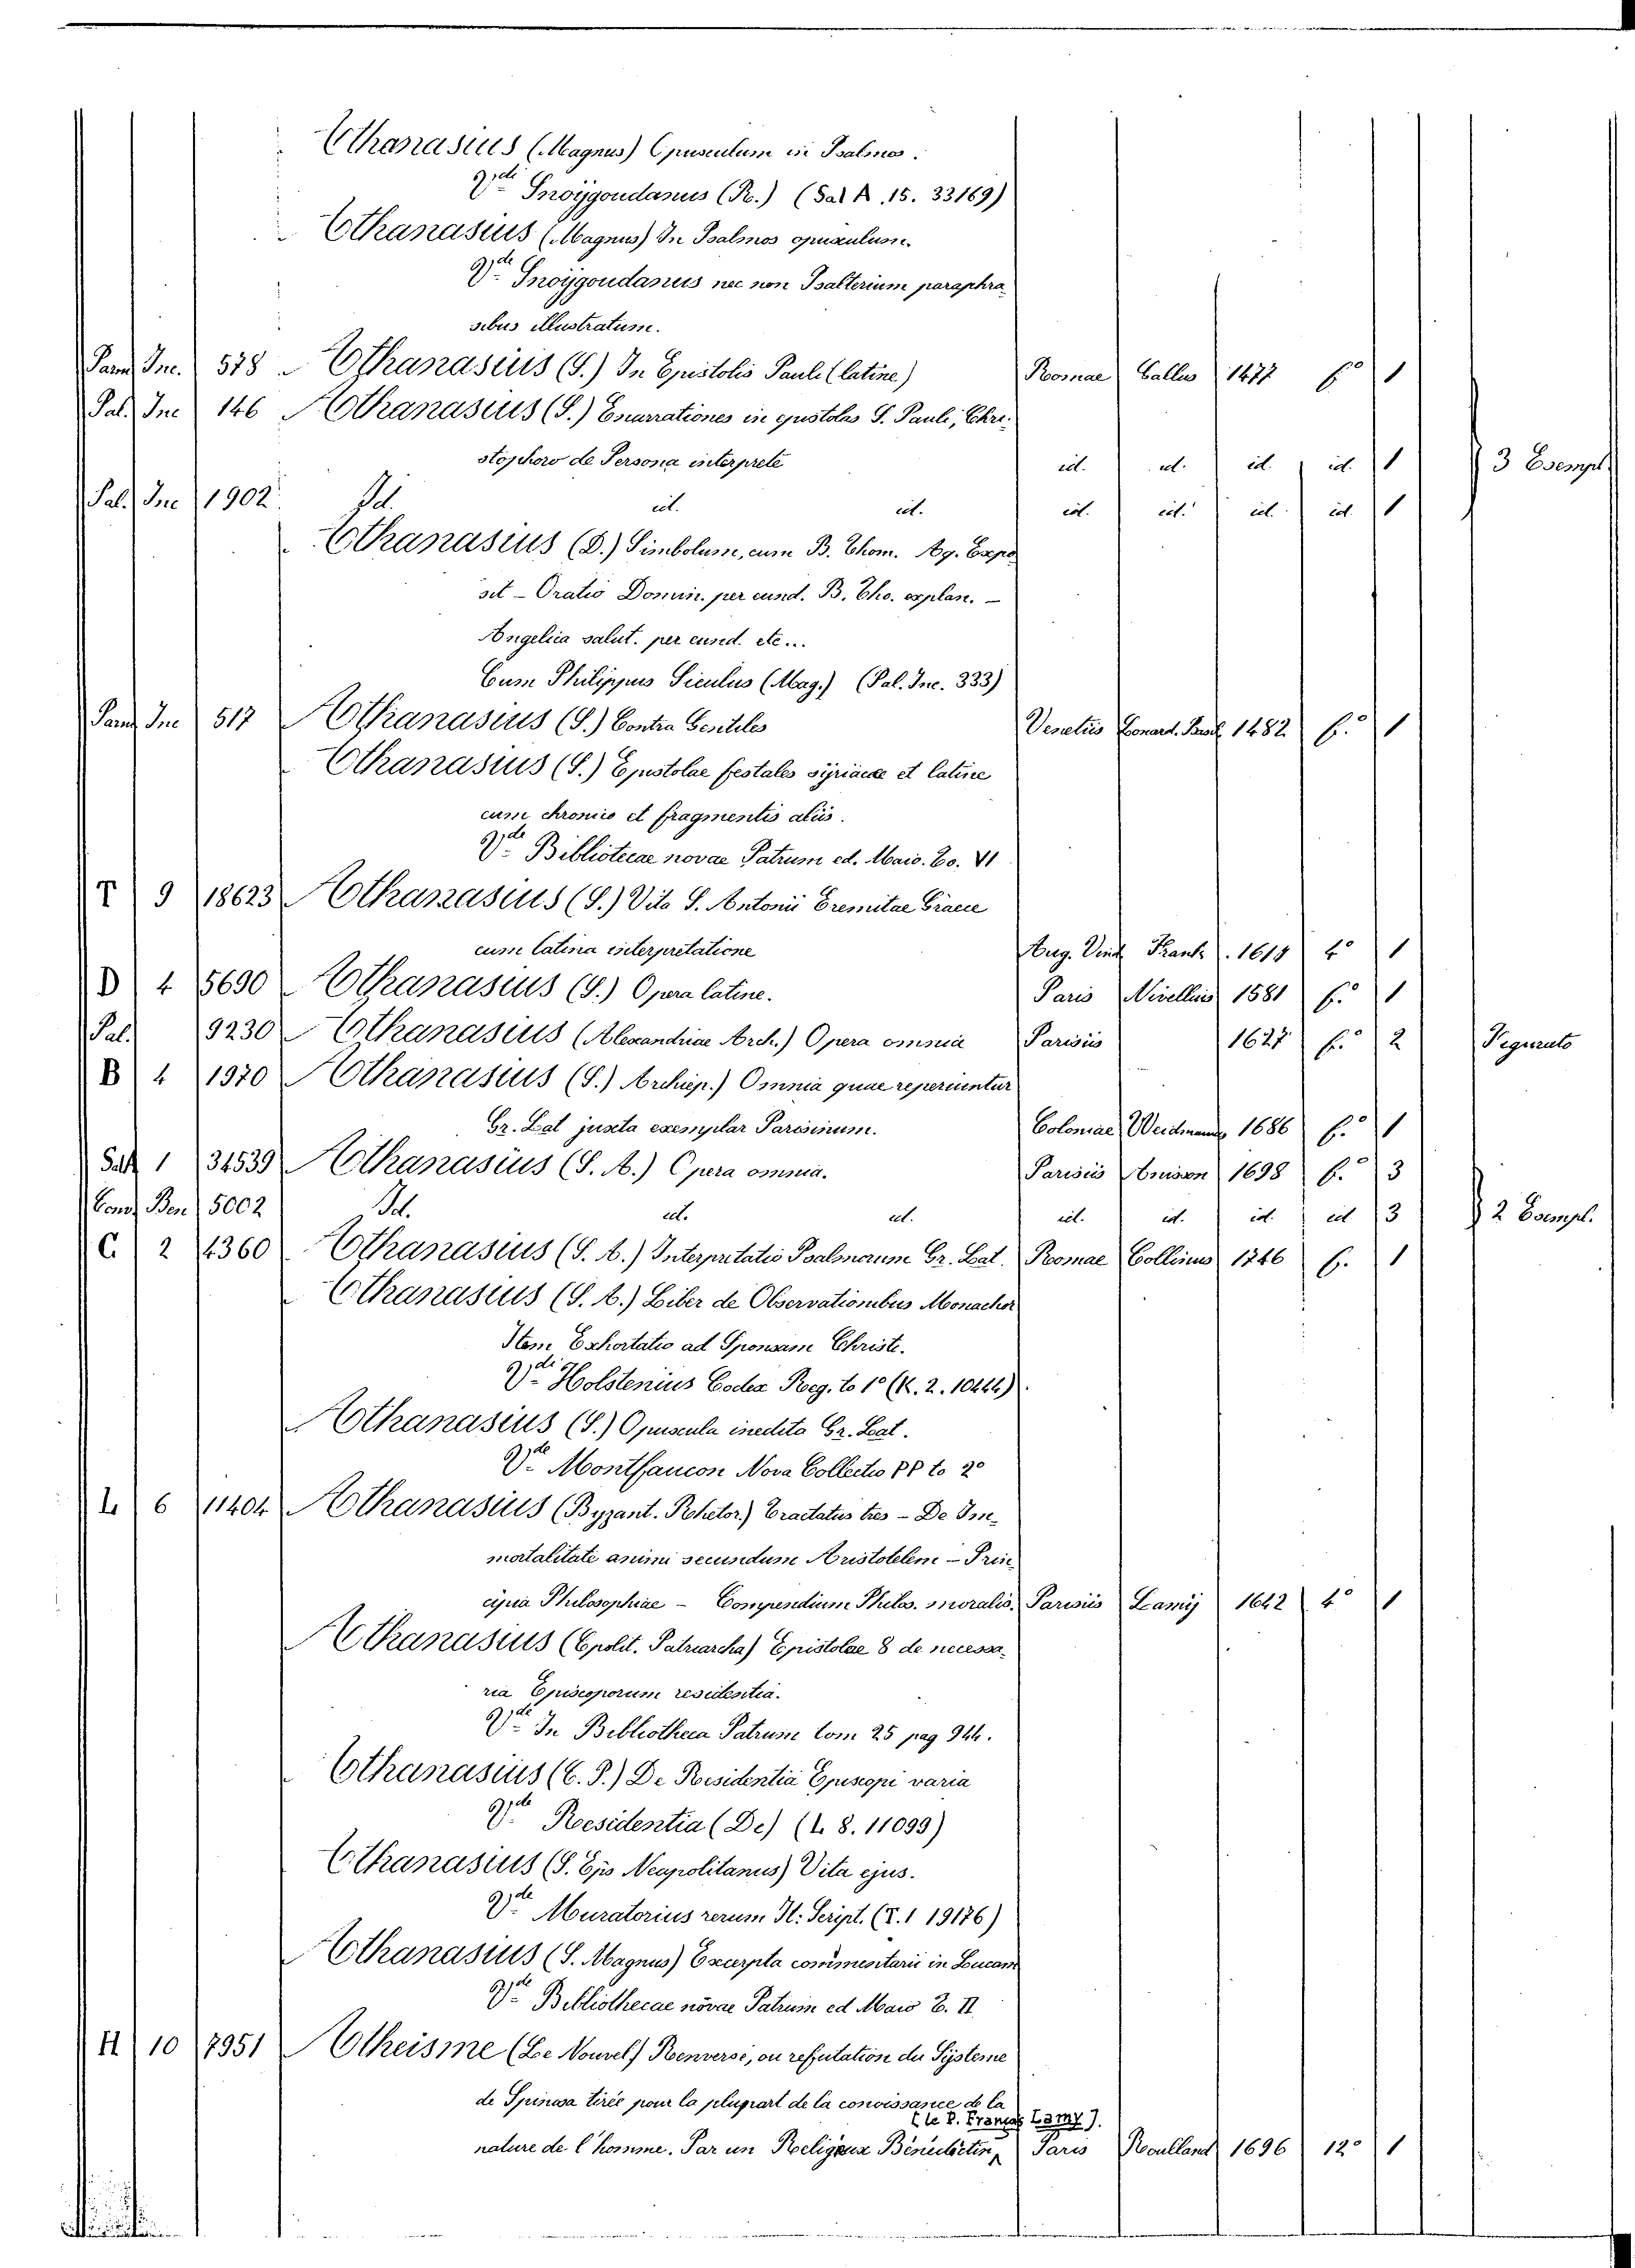 Athanasius (Magnus) Opusculum in Psalmos.
Vde Snoijgoudanus (R.) (Sal A. 15. 33169)
Athanasius (Magnus) In Psalmos opusculum.
Vde Snoijgoudanus nec non Psalterium paraphra-
sibus illustratum.
Parm Inc. 578 Athanasius (S.) In Epistolis Pauli (latine) Romae Gallus 1477 f.o 1
Pal. Inc 146 Athanasius (S.) Enarrationes in epistolas S. Pauli, Chri-
stophoro de Persona interprete id. id. id. id. 1 3 Esempl.
Pal. Inc 1902 Id. id. id. id. id. id. id. 1
Athanasius (D.) Simbolum, cum B. Thom. Aq. Expo-
sit - Oratio Domin. per eund. B. Tho. explan. -
Angelica salut. per eund. etc...
Cum Philippus Siculus (Mag.) (Pal. Inc. 333)
Parm Inc 517 Athanasius (S.) Contra Gentiles Venetiis Leonard. Basil. 1482 f.o 1
Athanasius (S.) Epistolae festales syriacae et latine
cum chronico et fragmentis aliis.
Vde Bibliotecae novae Patrum ed. Maio. To. VI
T 9 18623 Athanasius (S.) Vita S. Antonii Eremitae Graece
cum latina interpretatione Aug. Vind. Frank. 1611 4o 1
D 4 5690 Athanasius (S.) Opera latine. Paris Nivellius 1581 f.o 1
Pal. 9230 Athanasius (Alexandriae Arch.) Opera omnia Parisiis 1627 f.o 2 Pegurato
B 4 1970 Athanasius (S.) Archiep.) Omnia quae reperiuntur
Gr. Lat juxta exemplar Parisinum. Coloniae Weidmann 1686 f.o 1
Sal 1 34539 Athanasius (S. A.) Opera omnia. Parisiis Anisson 1698 f.o 3
Cons Ben 5002 Id. id. id. id. id. id. id 3 2 Esempl.
C. 2 4360 Athanasius (S. A.) Interpretatio Psalmorum Gr. Lat. Romae Collinus 1746 f. 1
Athanasius (S. A.) Liber de Observationibus Monachor
Item Exhortatio ad Sponsam Christi.
Vdi Holstenius Codex Reg. to 1o (K. 2. 10444)
Athanasius (S.) Opuscula inedita Gr. Lat.
Vde Montfaucon Nova Collectio PP to 2o
L 6 11404 Athanasius (Byzant. Rhetor.) Tractatus tres - De Im-
mortalitate animi secundum Aristotelem - Prin-
cipia Philosophiae - Compendium Philos. moralis. Parisiis Lamij 1642 4o 1
Athanasius (Epolit. Patriarcha) Epistolae 8 de necessa-
ria Episcoporum residentia.
Vde In Bibliotheca Patrum tom 25 pag 944.
Athanasius (C. P.) De Residentia Episcopi varia
Vde Residentia (De) (L. 8. 11099)
Athanasius (S. Eps Neapolitanus) Vita ejus.
Vde Muratorius rerum It: Script. (T. 1 19176)
Athanasius (S. Magnus) Excerpta commentarii in Lucam
Vde Bibliothecae novae Patrum ed Maio T. II
H 10 7951 Atheisme (Le Nouvel) Renversé, ou refutation du Sisteme
de Spinosa tirée pour la plupart de la conoissance de la
(le P. François Lamy).
nature de l'homme. Par un Religieux Bénédictin, Paris Roulland 1696 12o 1